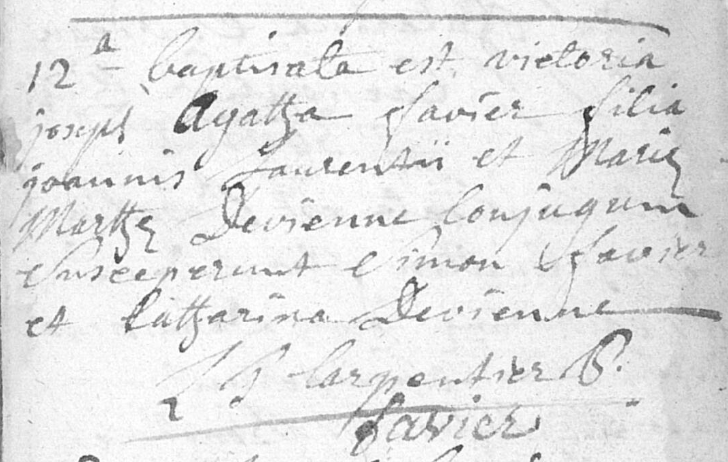 12 a baptisata est victoria
joseph Agatha favier filia
joannis Laurentii et Mariæ
Marthæ Devienne Conjugum
Susceperunt Simon favier
et Catharina Devienne
Carpentier P.
favier